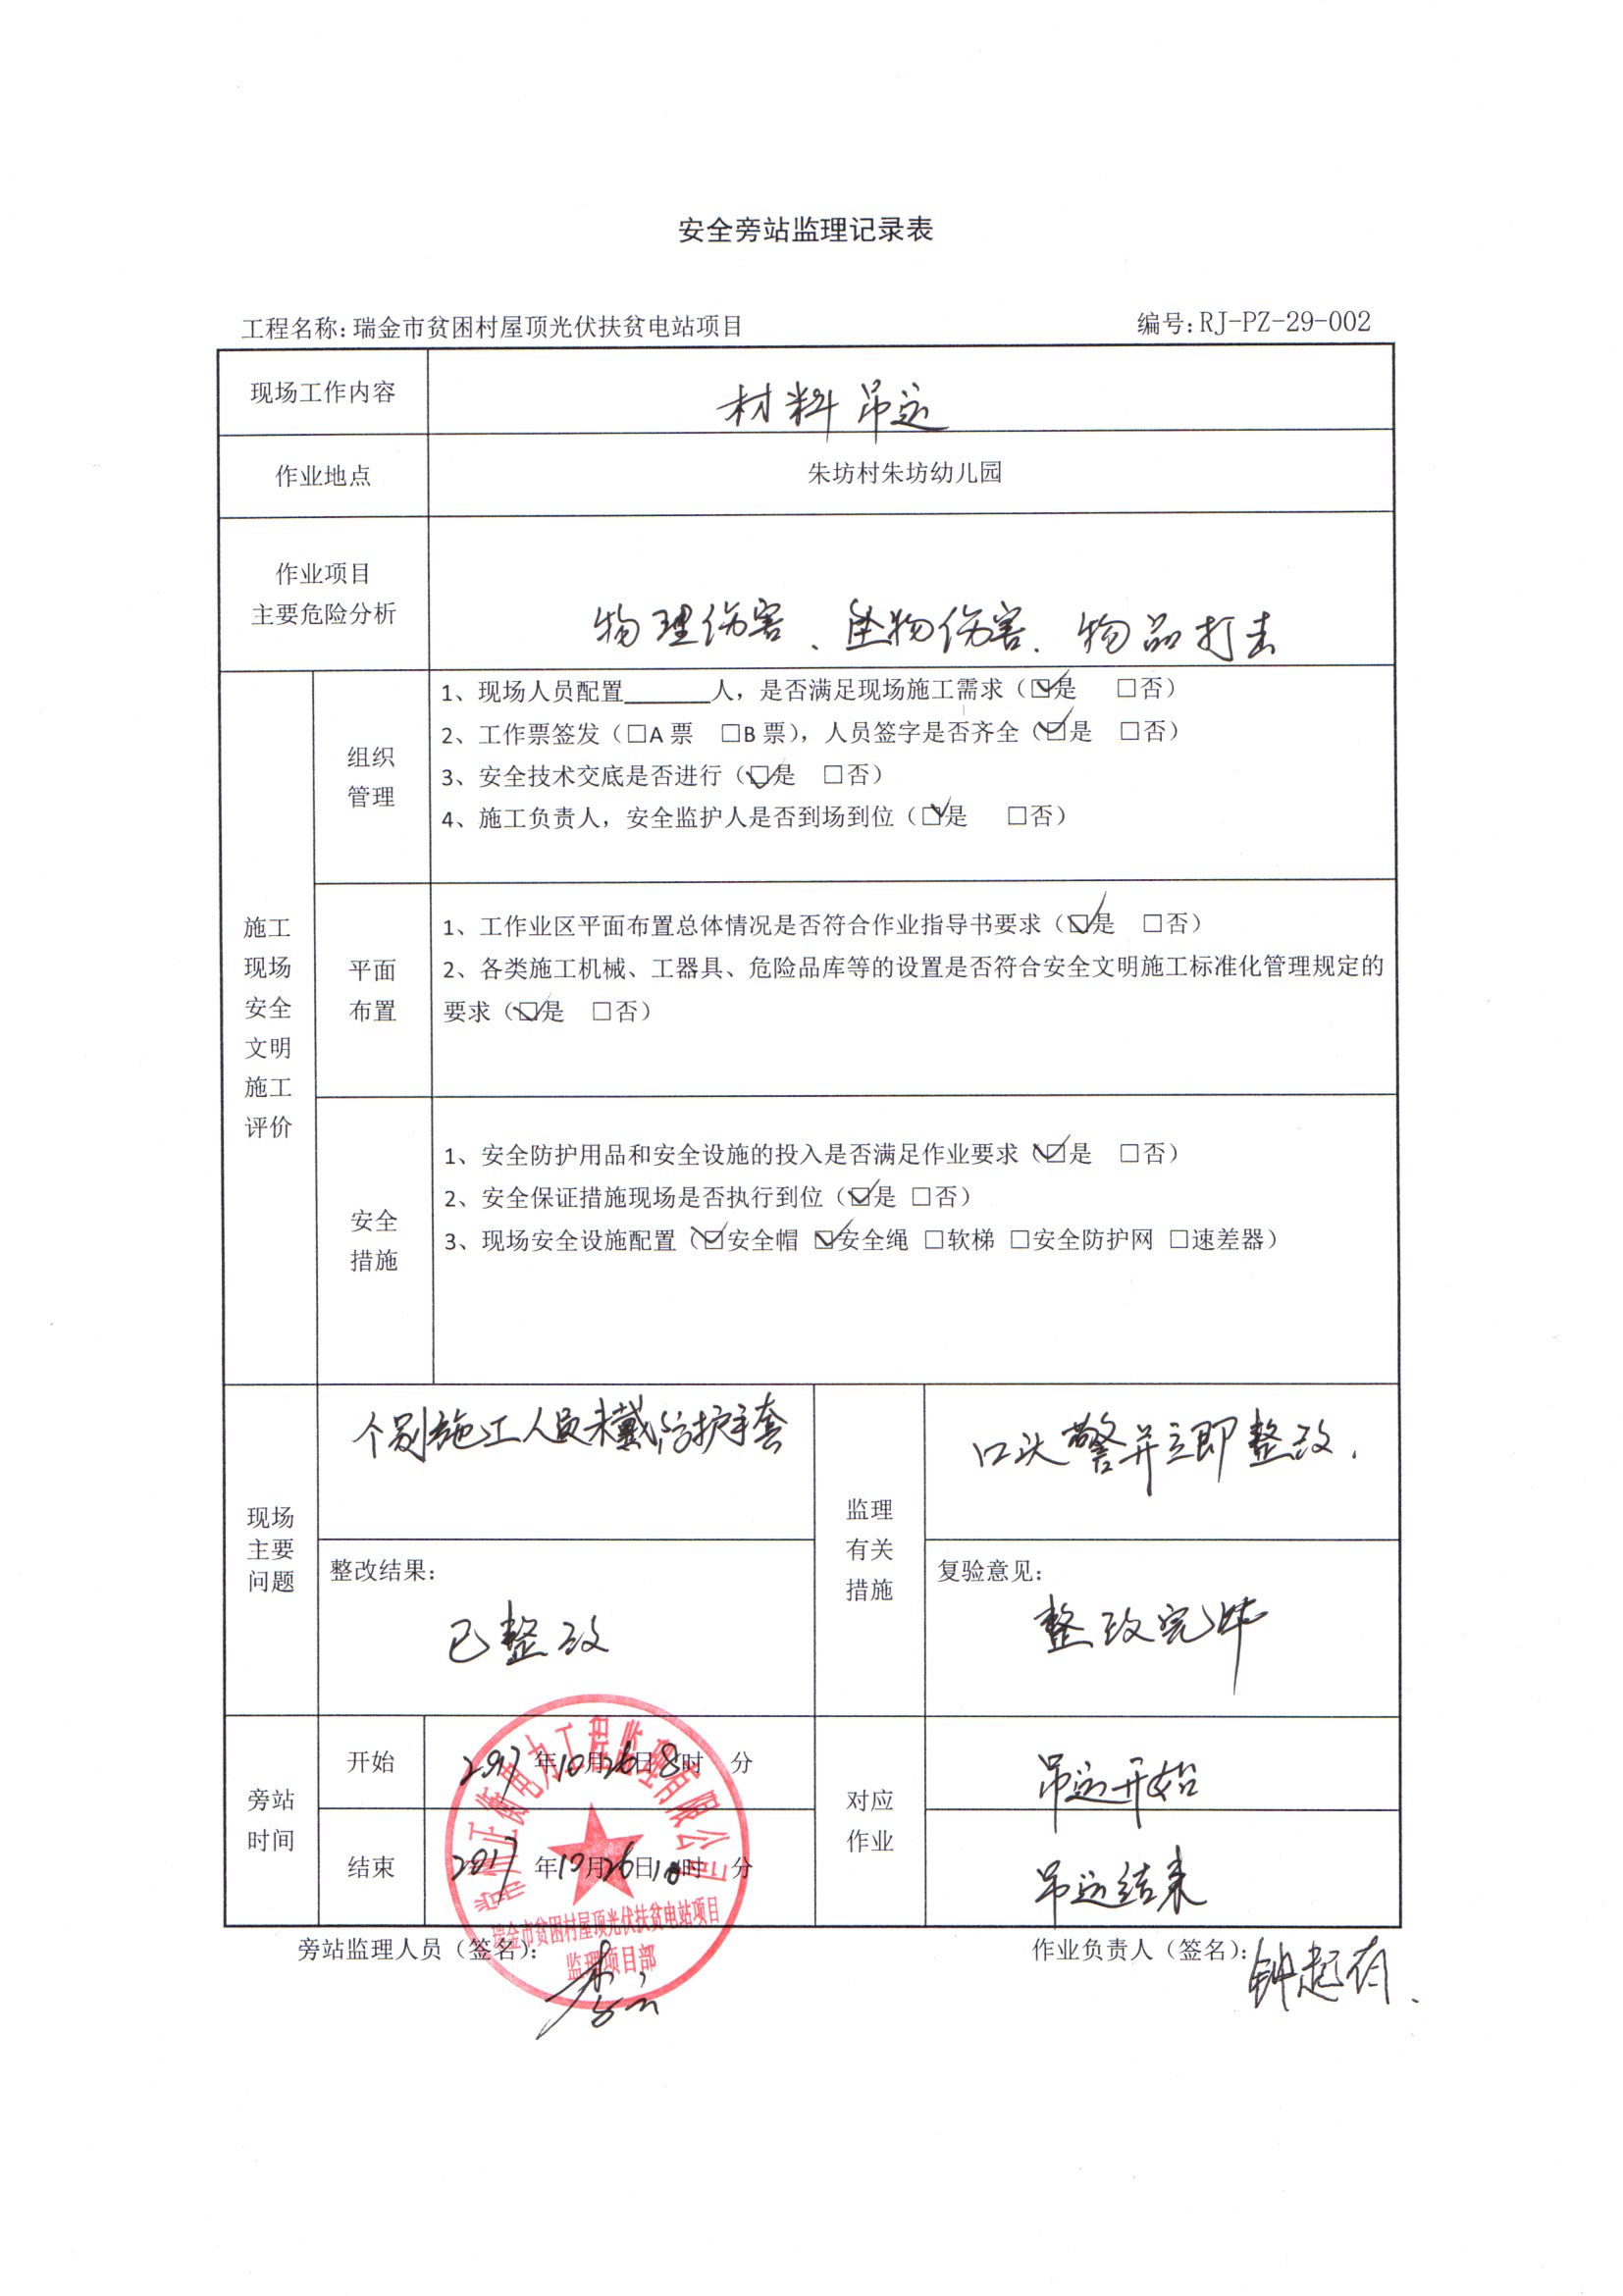 安全旁站监理记录表
工程名称：瑞金市贫困村屋顶光伏扶贫电站项目 编号：RJ-PZ-29-002
现场工作内容 材料吊运
作业地点 朱坊村朱坊幼儿园
作业项目
主要危险分析
物理伤害、坠物伤害、物品打击
施工
现场
安全
文明
施工
评价
组织
管理
1、现场人员配置______人，是否满足现场施工需求（☑是 □否）
2、工作票签发（□A 票 □B 票），人员签字是否齐全（☑是 □否）
3、安全技术交底是否进行（☑是 □否）
4、施工负责人，安全监护人是否到场到位（☑是 □否）
平面
布置
1、工作业区平面布置总体情况是否符合作业指导书要求（☑是 □否）
2、各类施工机械、工器具、危险品库等的设置是否符合安全文明施工标准化管理规定的
要求（☑是 □否）
安全
措施
1、安全防护用品和安全设施的投入是否满足作业要求（☑是 □否）
2、安全保证措施现场是否执行到位（☑是 □否）
3、现场安全设施配置（☑安全帽 ☑安全绳 □软梯 □安全防护网 □速差器）
现场
主要
问题
个别施工人员未戴防护手套
整改结果：
已整改
监理
有关
措施
口头警并立即整改.
复验意见：
整改完毕
旁站
时间
开始 2017年10月26日8时 分
结束 2017年10月26日10时 分
对应
作业
吊运开始
吊运结束
常州正衡电力工程监理有限公司
瑞金市贫困村屋顶光伏扶贫电站项目
监理项目部
旁站监理人员（签名）： 作业负责人（签名）：钟起有.